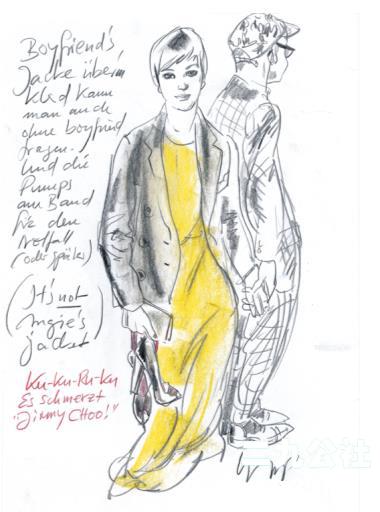 Boyfriend's
Jacke über'm
Kleid kann
man auch
ohne boyfriend
tragen.
Und die
Pumps
am Band
für den
Notfall
(oder später)
(It's not
Ingie's
jacket)
Ku-Ku-Ru-Ku
Es schmerzt
"Jimmy CHOO!"